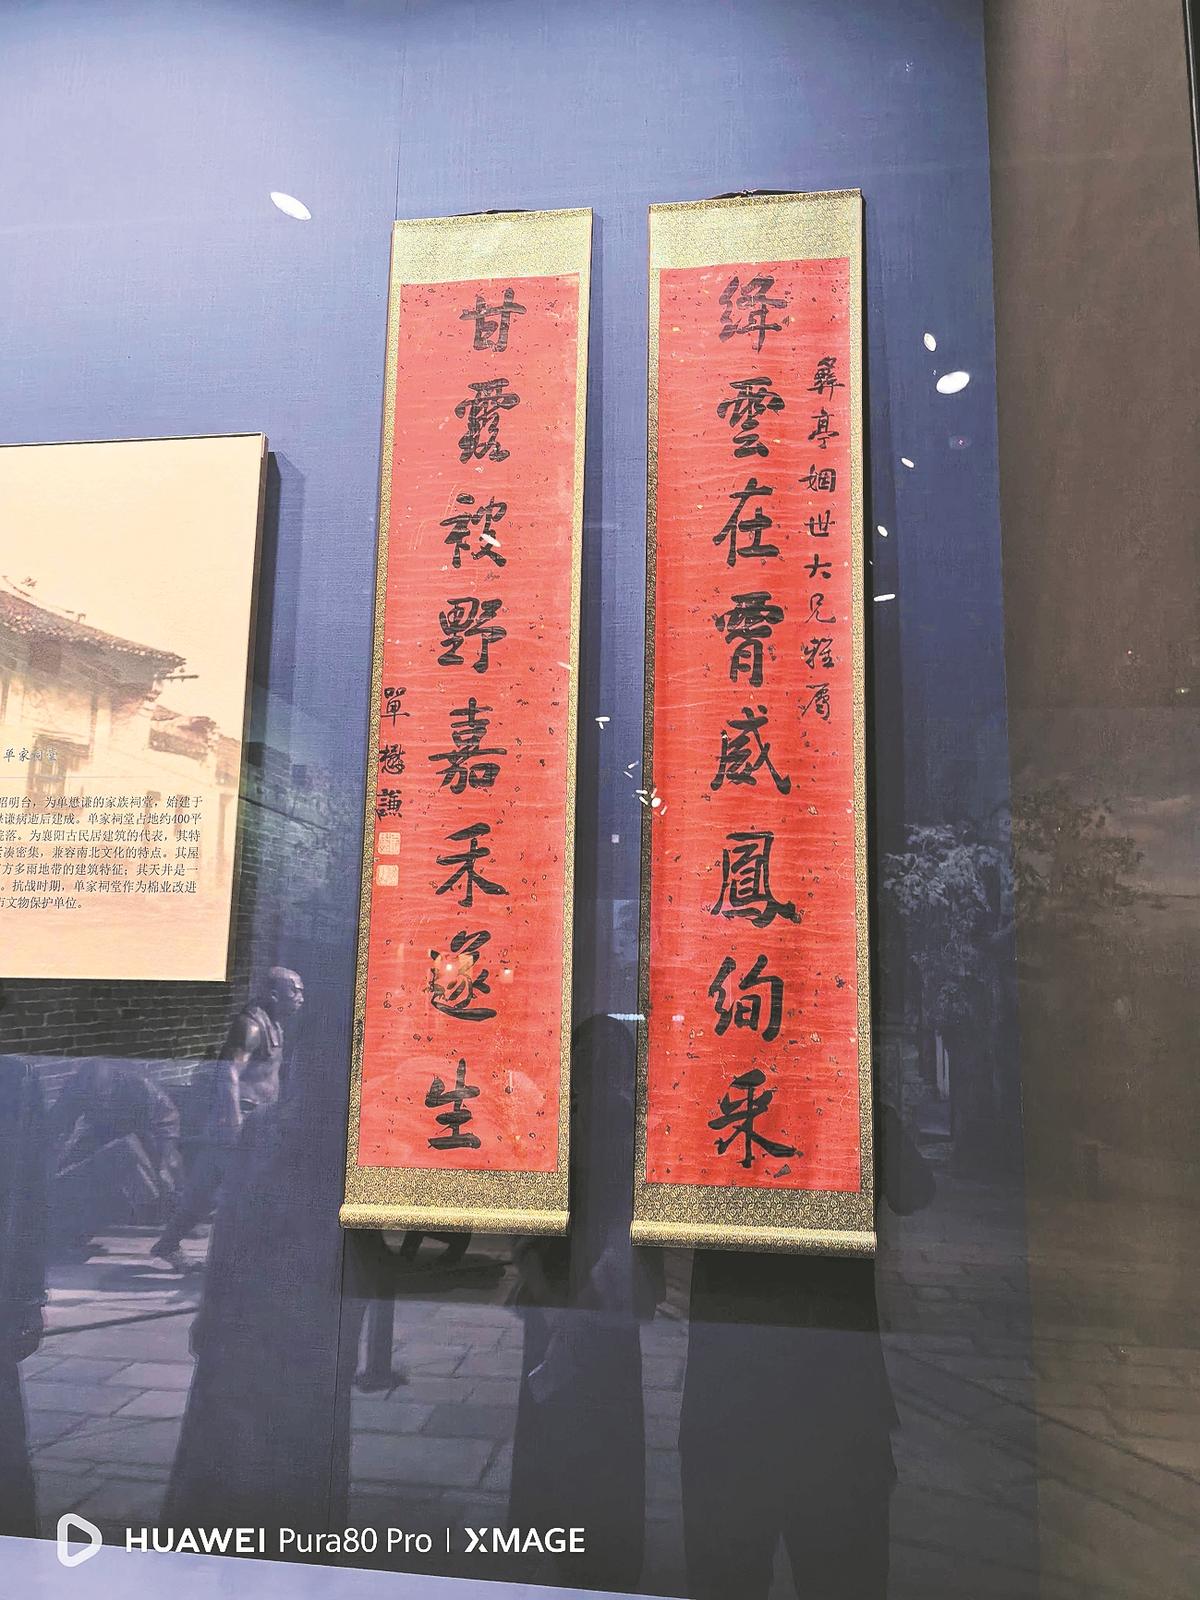 絳雲在霄威鳳絢采
彝亭姻世大兄雅屬
甘露被野嘉禾遂生
單懋謙
单家祠堂
昭明台，为单懋谦的家族祠堂，始建于
懋谦病逝后建成。单家祠堂占地约400平
院落。为襄阳古民居建筑的代表，其特
凑密集，兼容南北文化的特点。其屋
方多雨地带的建筑特征；其天井是一
。抗战时期，单家祠堂作为棉业改进
市文物保护单位。
HUAWEI Pura80 Pro | XMAGE